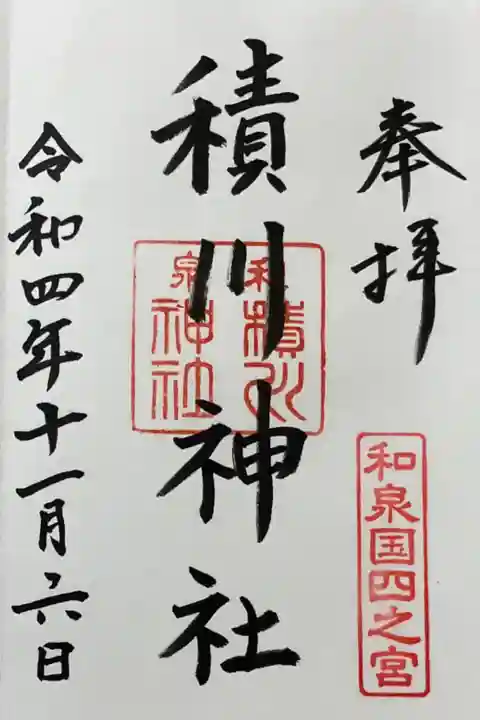 奉拝
和泉国四之宮
積川神社
和泉
積川
神社
令和四年十一月六日